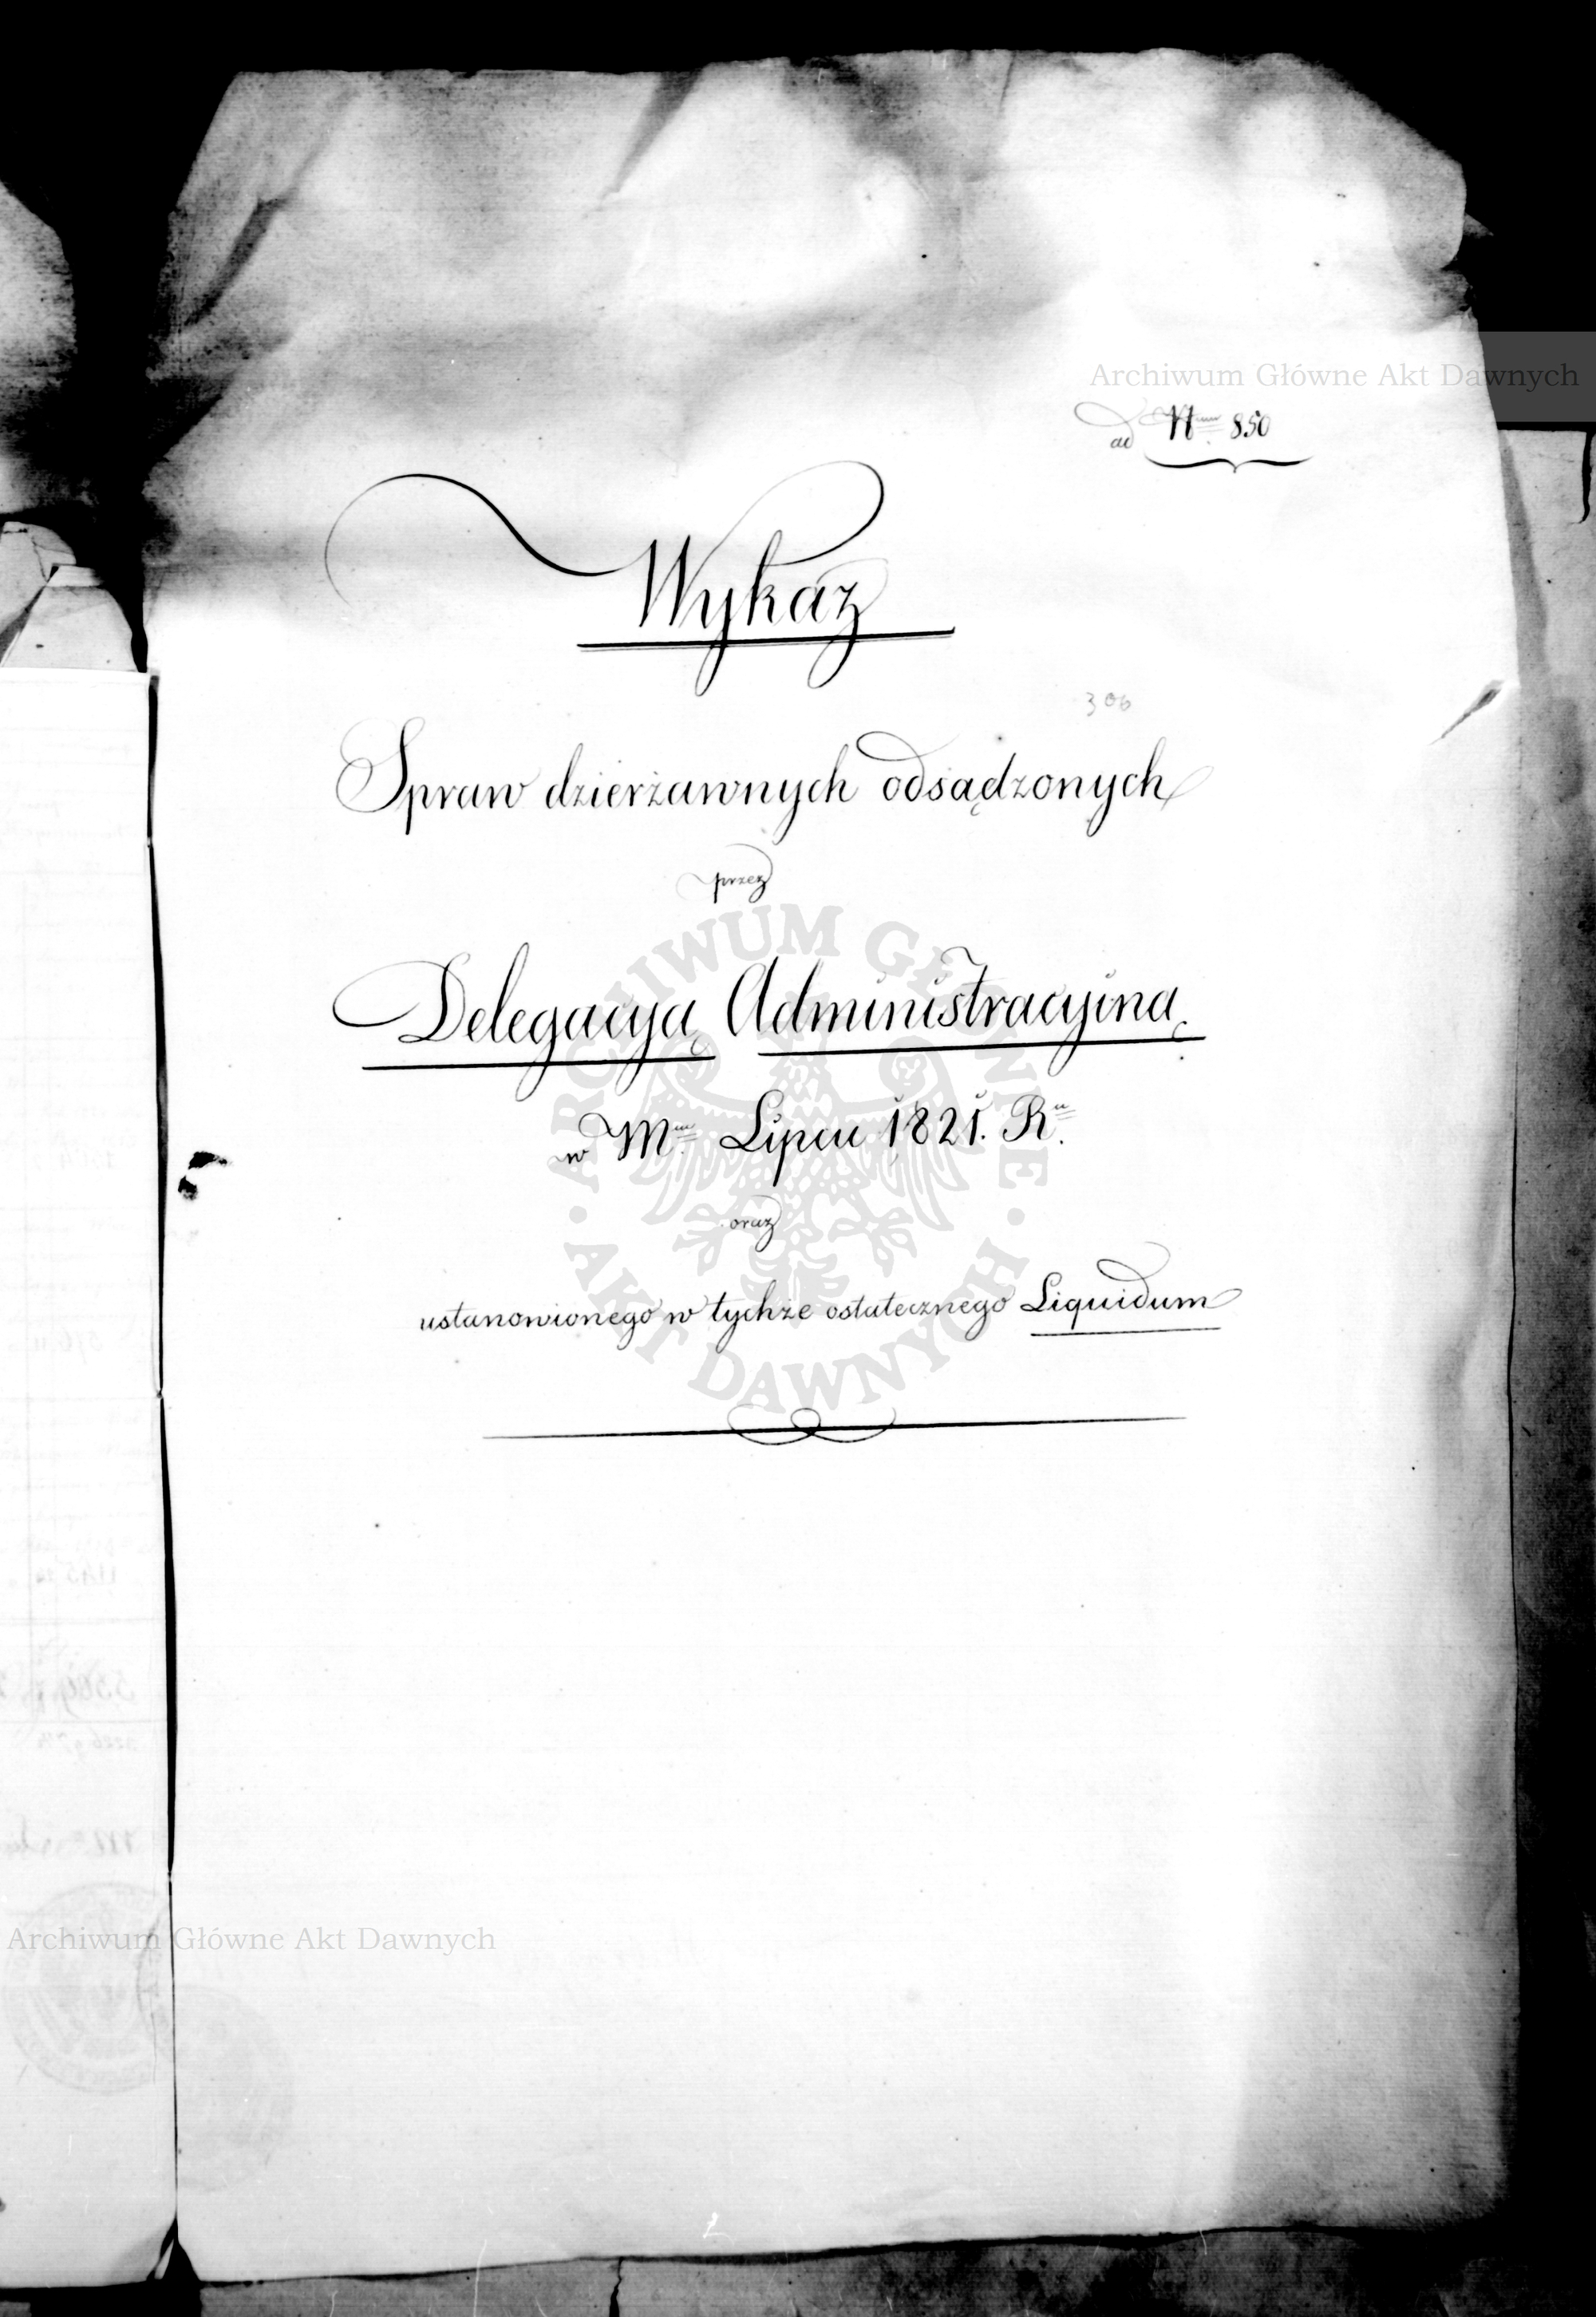 Archiwum Główne Akt Dawnych
ad Nrum 850
Wykaz
306
Spraw dzierżawnych odsądzonych
przez
Delegacyą Administracyiną
w Mcu Lipcu 1821. Ru.
oraz
ustanowionego w tychże ostatecznego Liquidum
ARCHIWUM GŁÓWNE
AKT DAWNYCH
Archiwum Główne Akt Dawnych